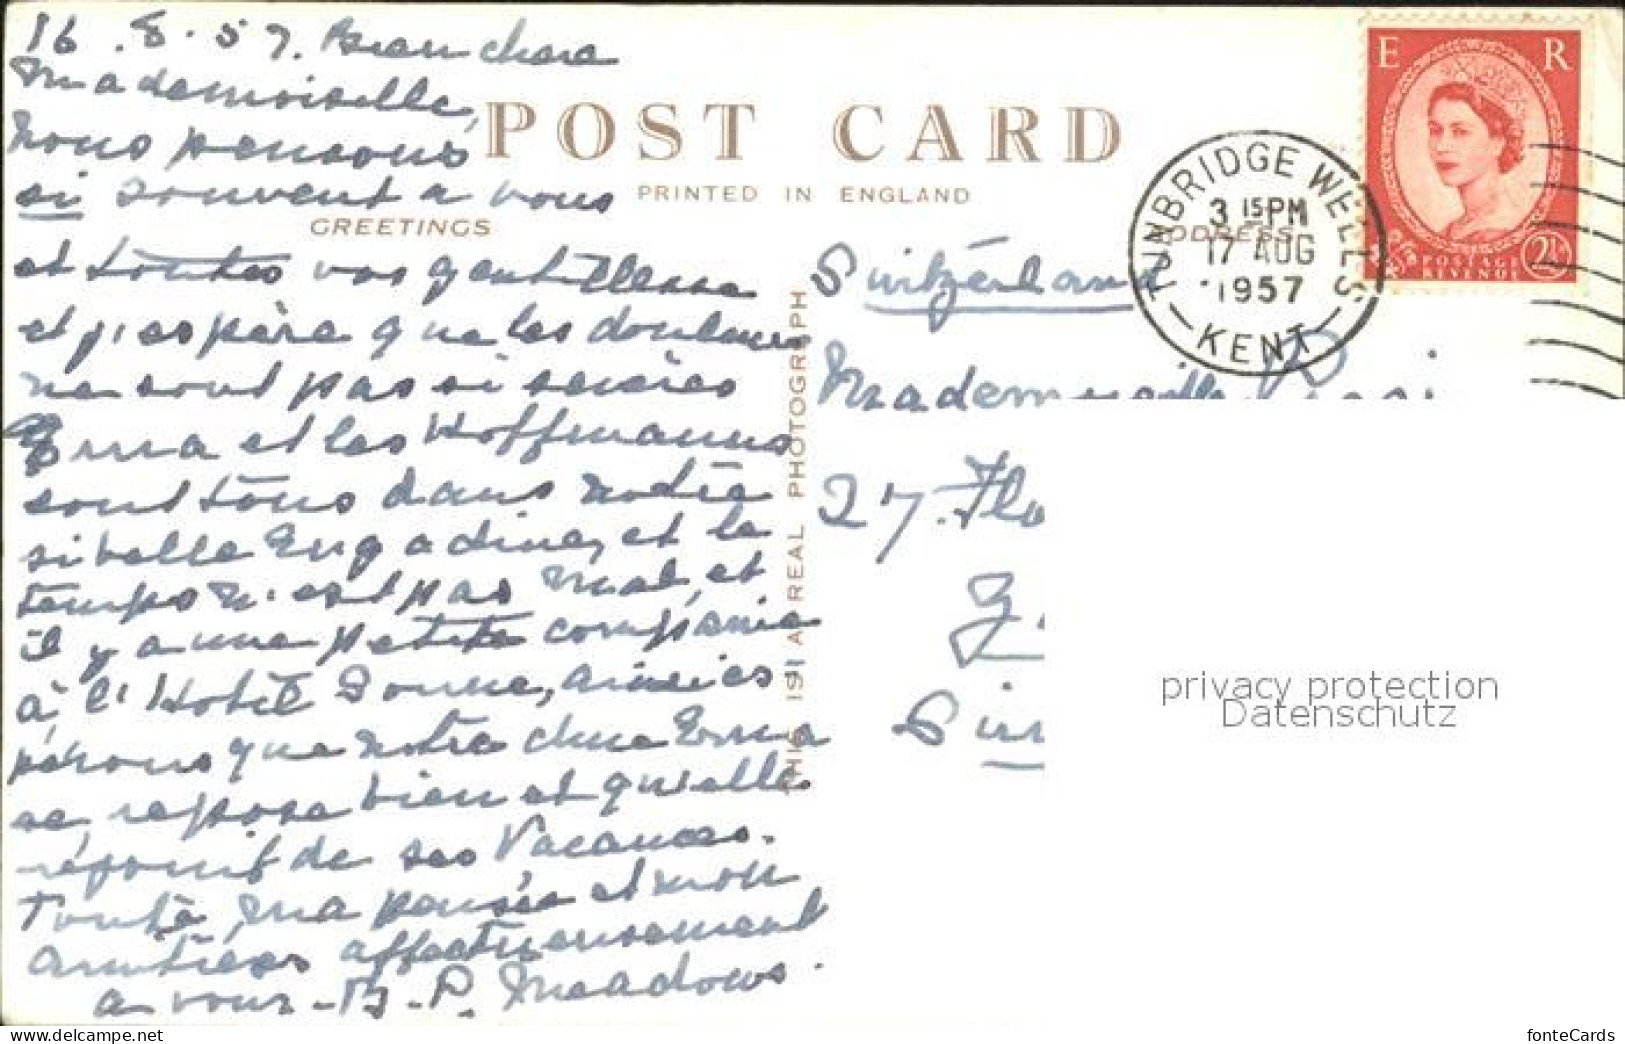 16.8.57. Bien chère
Mademoiselle,
nous pensons
si souvent a vous
et toutes vos gentillesse
et j'espère que les douleurs
ne sont pas si sevères
Erna et les Hoffmanns
sont tous dans notre
si belle Engadine, et le
temps n'est pas mal, et
il y a une petite compagnie
à l'Hotel Sonne, ainsi es
pérons que notre chère Erna
se repose bien et qu'elle
réjouit de ses Vacances.
Toute ma pensée et mon
amitiées affectueusement
a vous - P. Meadows.
POST CARD
PRINTED IN ENGLAND
GREETINGS
ADDRESS
THIS IS A REAL PHOTOGRAPH
TUNBRIDGE WELLS
3 15 PM
17 AUG
1957
KENT
E R
POSTAGE
REVENUE
2½
Switzerland
Mademoiselle
27. Flo
privacy protection
Datenschutz
www.delcampe.net
fonteCards